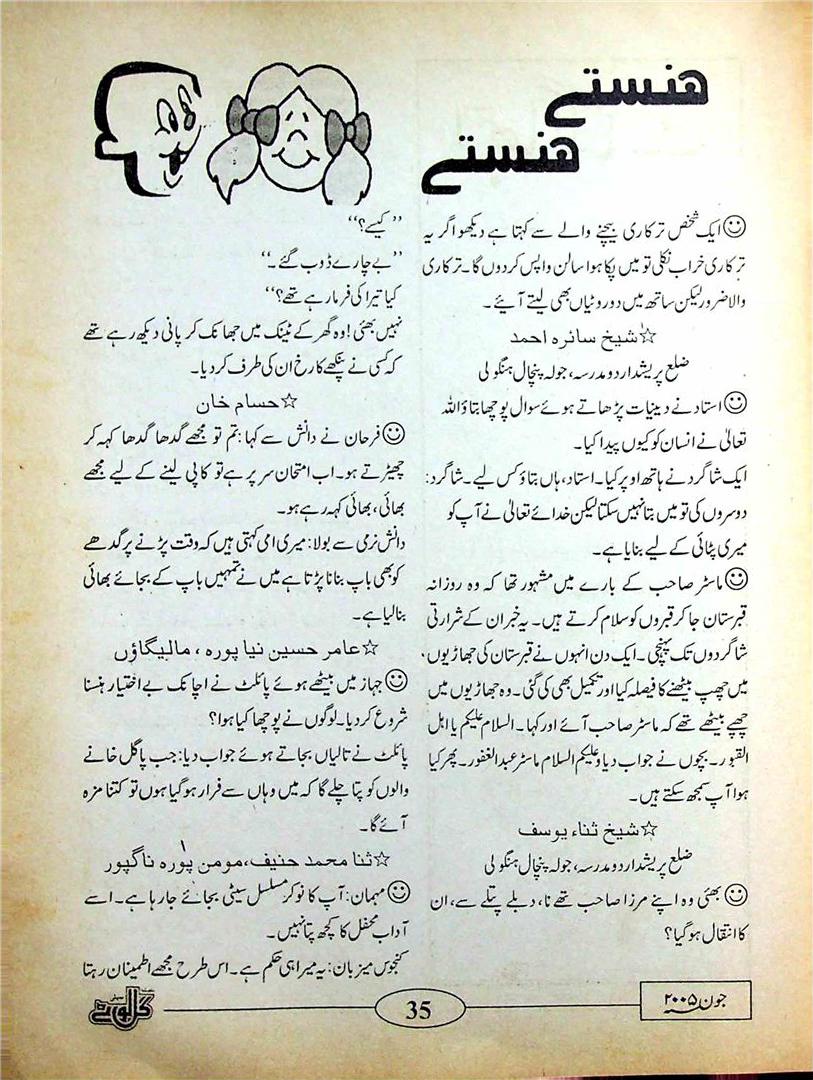 ہنستے
ہنستے
ایک شخص ترکاری بیچنے والے سے کہتا ہے دیکھو اگر یہ
ترکاری خراب نکلی تو میں پکا ہوا سالن واپس کردوں گا۔ ترکاری
والا ضرور لیکن ساتھ میں دو روٹیاں بھی لیتے آئیے۔
☆شیخ سائرہ احمد
ضلع پریشد اردو مدرسہ، جولہ پنچال ہنگولی
استاد نے دینیات پڑھاتے ہوئے سوال پوچھا بتاؤ اللہ
تعالیٰ نے انسان کو کیوں پیدا کیا۔
ایک شاگرد نے ہاتھ اوپر کیا۔ استاد، ہاں بتاؤ کس لیے۔ شاگرد:
دوسروں کی تو میں بتا نہیں سکتا لیکن خدائے تعالیٰ نے آپ کو
میری پٹائی کے لیے بنایا ہے۔
ماسٹر صاحب کے بارے میں مشہور تھا کہ وہ روزانہ
قبرستان جا کر قبروں کو سلام کرتے ہیں۔ یہ خبر ان کے شرارتی
شاگردوں تک پہنچی۔ ایک دن انہوں نے قبرستان کی جھاڑیوں،
میں چھپ بیٹھنے کا فیصلہ کیا اور تکمیل بھی کی گئی۔ وہ جھاڑیوں میں
چھپے بیٹھے تھے کہ ماسٹر صاحب آئے اور کہا۔ السلام علیکم یا اہل
القبور۔ بچوں نے جواب دیا وعلیکم السلام ماسٹر عبدالغفور۔ پھر کیا
ہوا آپ سمجھ سکتے ہیں۔
☆شیخ ثناء یوسف
ضلع پریشد اردو مدرسہ، جولہ پنچال ہنگولی
بھئی وہ اپنے مرزا صاحب تھے نا، دبلے پتلے سے، ان
کا انتقال ہوگیا؟
‘‘کیسے؟’’
‘‘بے چارے ڈوب گئے۔’’
کیا تیرا کی فرما رہے تھے؟’’
نہیں بھئی! وہ گھر کے ٹینک میں جھانک کر پانی دیکھ رہے تھے
کہ کسی نے پنکھے کا رخ ان کی طرف کردیا۔
☆حسام خان
فرحان نے دانش سے کہا: تم تو مجھے گدھا گدھا کہہ کر
چھیڑتے ہو۔ اب امتحان سر پر ہے تو کاپی لینے کے لیے مجھے
بھائی، بھائی کہہ رہے ہو۔
دانش نرمی سے بولا: میری امی کہتی ہیں کہ وقت پڑنے پر گدھے
کو بھی باپ بنانا پڑتا ہے میں نے تمہیں باپ کے بجائے بھائی
بنالیا ہے۔
☆عامر حسین نیا پورہ، مالیگاؤں
جہاز میں بیٹھے ہوئے پائلٹ نے اچانک بے اختیار ہنسنا
شروع کردیا۔ لوگوں نے پوچھا کیا ہوا؟
پائلٹ نے تالیاں بجاتے ہوئے جواب دیا: جب پاگل خانے
والوں کو پتا چلے گا کہ میں وہاں سے فرار ہوگیا ہوں تو کتنا مزہ
آئے گا۔
☆ثنا محمد حنیف، مومن پورہ ناگپور
مہمان: آپ کا نوکر مسلسل سیٹی بجائے جارہا ہے۔ اسے
آداب محفل کا کچھ پتا نہیں۔
کنجوس میزبان: یہ میرا ہی حکم ہے۔ اس طرح مجھے اطمینان رہتا
جون ۲۰۰۵
35
گل بوٹے